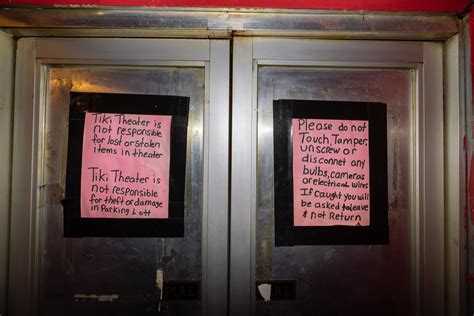 Tiki Theater is
not responsible
for lost or stolen
items in theater
Tiki Theater is
not responsible
for theft or damage
in Parking Lott
Please do not
Touch, Tamper,
unscrew or
disconnet any
bulbs, cameras
or electrical wires
If caught you will
be asked to leave
& not Return
PULL